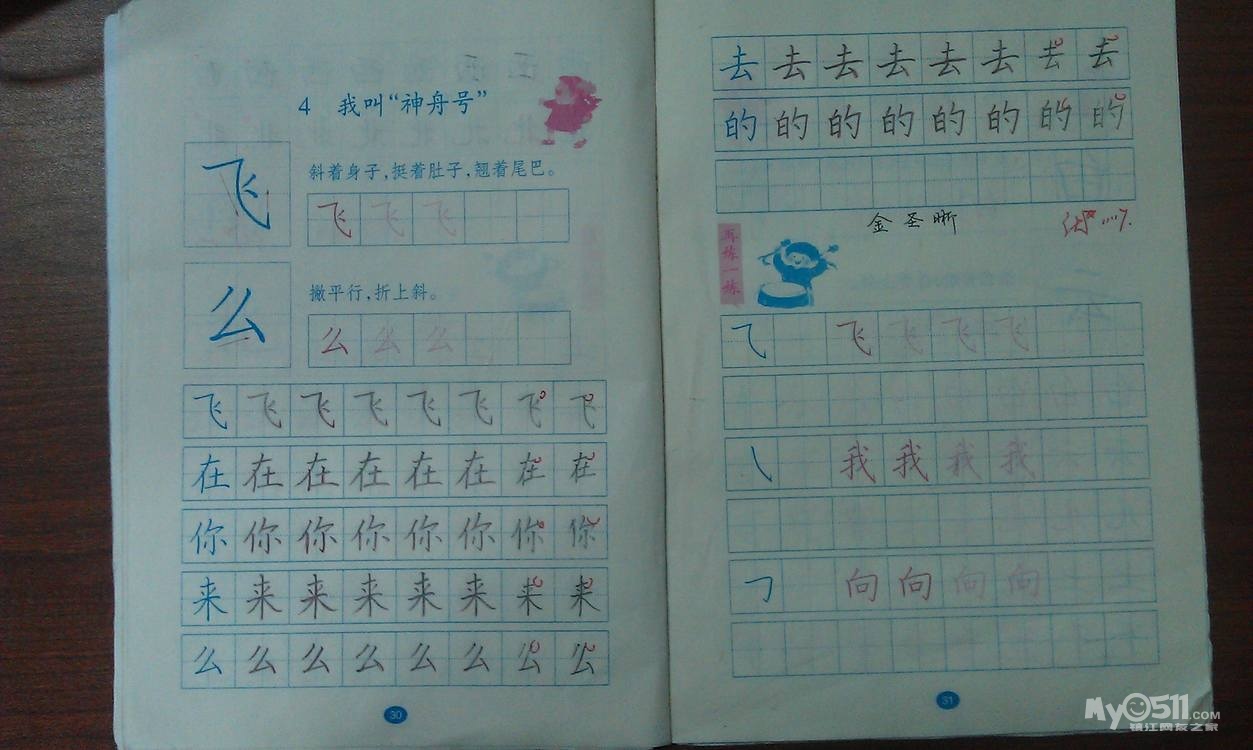 4 我叫“神舟号”
飞
斜着身子，挺着肚子，翘着尾巴。
飞飞飞
么
撇平行，折上斜。
么么么
飞飞飞飞飞飞飞飞
在在在在在在在在
你你你你你你你你
来来来来来来来来
么么么么么么么么
30
去去去去去去去去
的的的的的的的的
金圣晰
再练一练
飞飞飞飞
我我我我
向向向向
31
My0511.COM
镇江网友之家